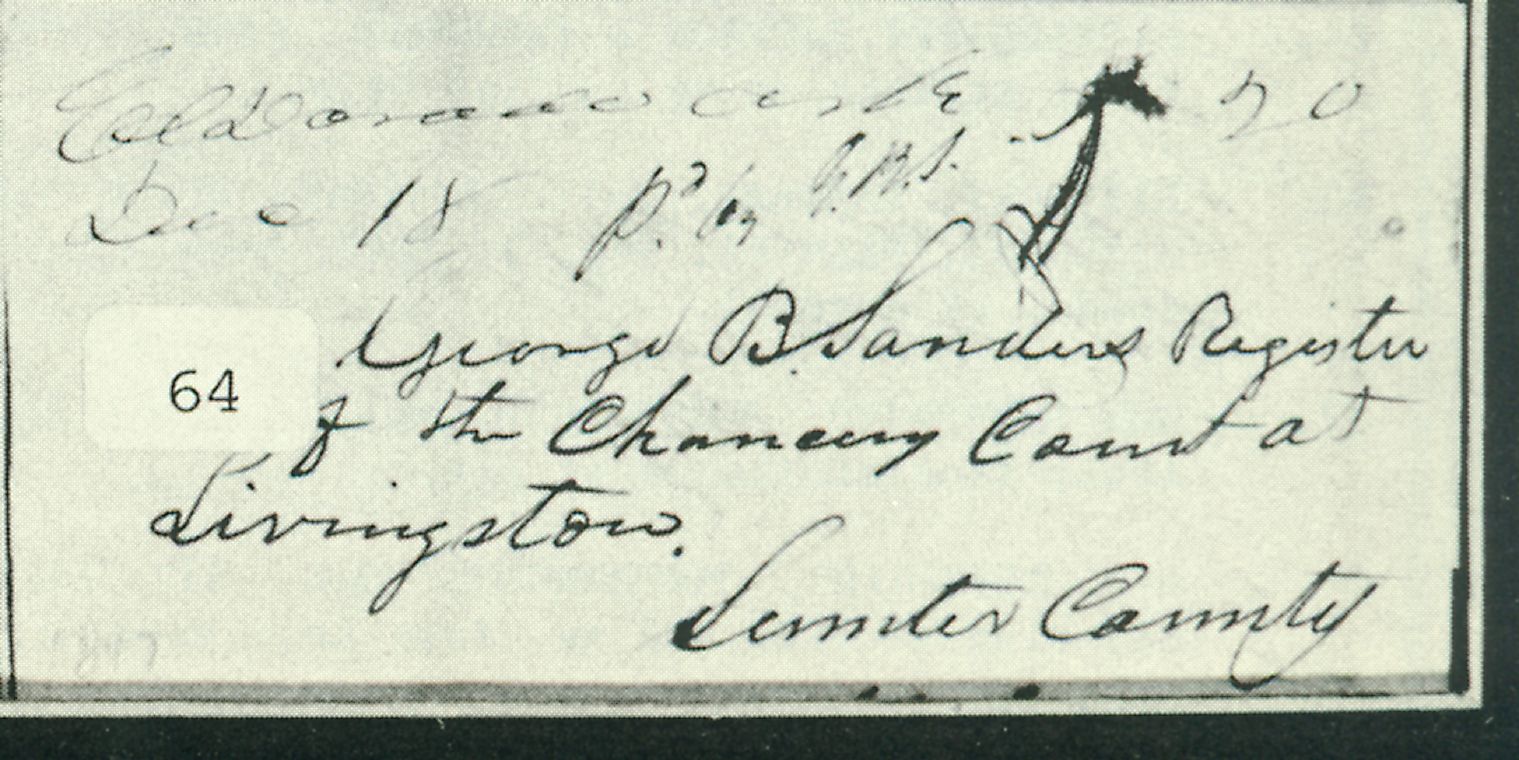 ElDorado ark 20
Dec 18 pd by G.B.S.
George B. Sanders Register
64
of the Chancery Court at
Livingston.
Sumter County